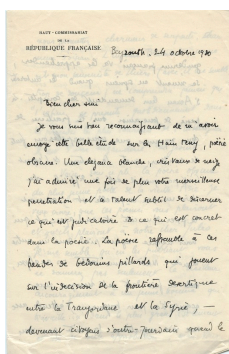 HAUT-COMMISSARIAT
DE LA
RÉPUBLIQUE FRANÇAISE
Beyrouth. 24 octobre 1930
Bien cher ami
Je vous suis bien reconnaissant de m'avoir
envoyé cette belle étude sur les Haïn Teny, poésie
obscure. Une élégance blanche, cristaux de neige
j'ai admiré une fois de plus votre merveilleuse
pénétration et ce talent subtil de discerner
ce qui est judicatoire de ce qui est concret
dans la poésie. La poésie ressemble à ces
bandes de bédouins pillards qui jouent
sur l'indécision de la frontière désertique
entre la Transjordanie et la Syrie, —
devenant citoyens d'outre-Jourdain quand le